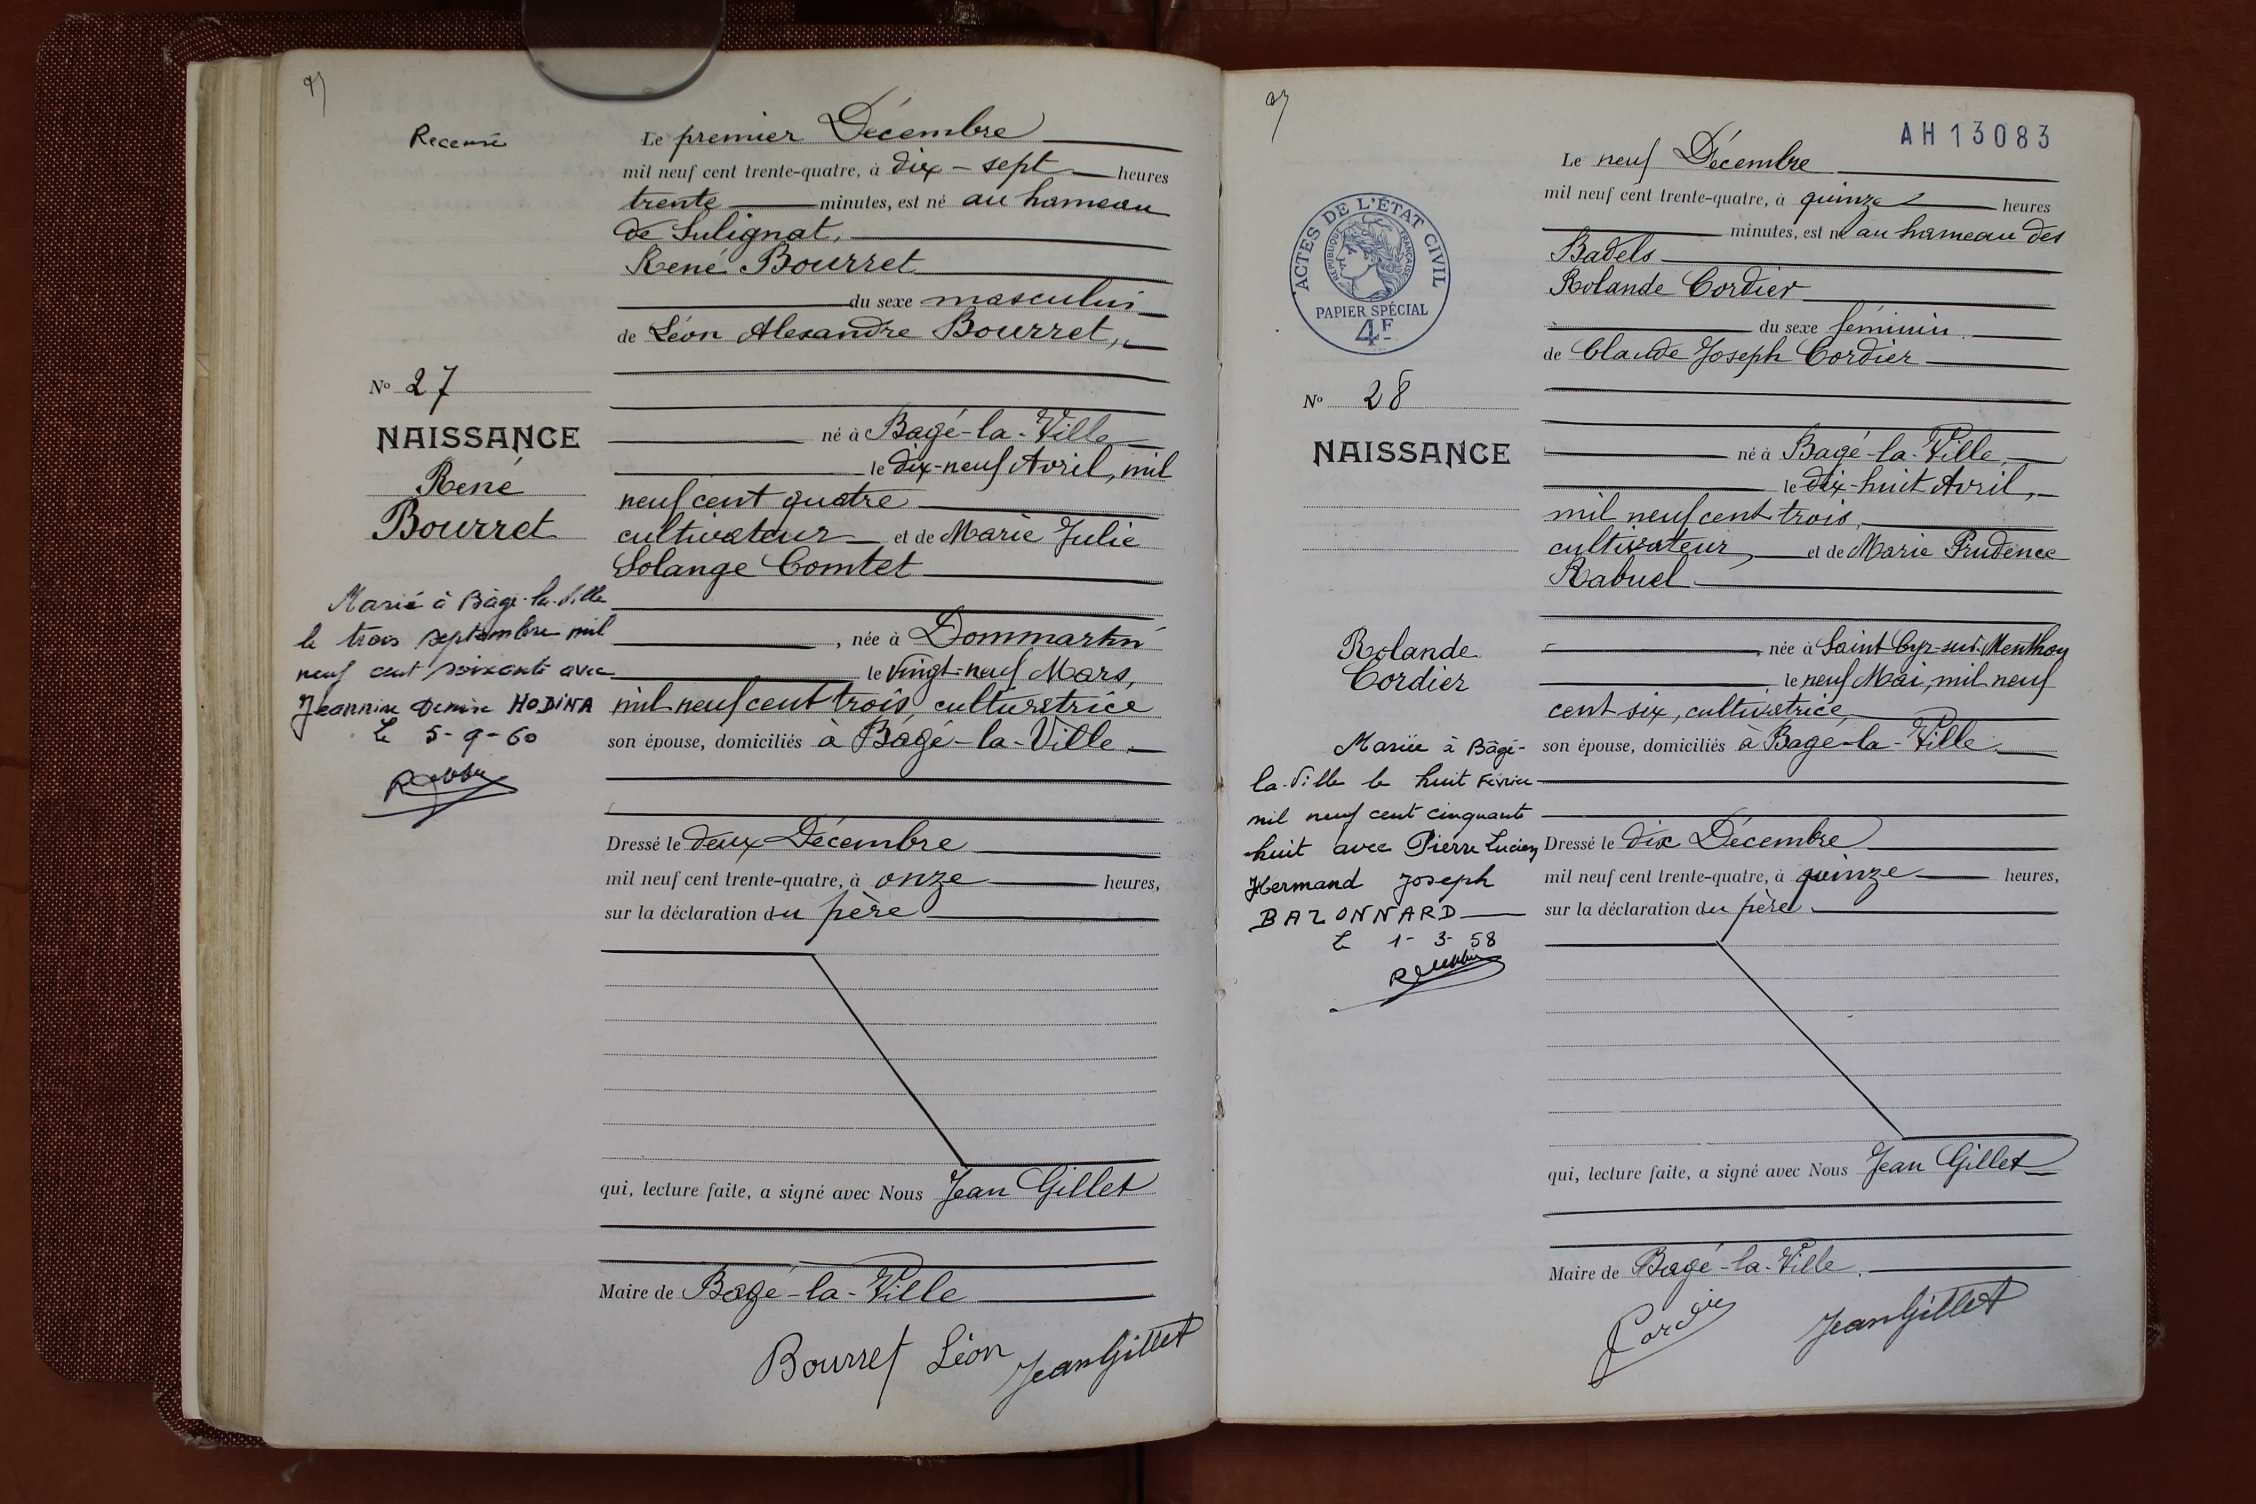 Recensé
Le premier Décembre
mil neuf cent trente-quatre, à dix-sept heures
trente minutes, est né au hameau
de Sulignat,
René Bourret
du sexe masculin
de Léon Alexandre Bourret,
N° 27
NAISSANCE
René
Bourret
né à Bagé-la-Ville
le dix-neuf Avril, mil
neuf cent quatre
cultivateur et de Marie Julie
Solange Comtet
née à Dommartin
le vingt-neuf Mars,
mil neuf cent trois, cultivatrice
son épouse, domiciliés à Bâgé-la-Ville
Marié à Bâgé-la-Ville
le trois septembre mil
neuf cent soixante avec
Jeannine Denise HODINA
Le 5-9-60
Dressé le deux Décembre
mil neuf cent trente-quatre, à onze heures,
sur la déclaration du père
qui, lecture faite, a signé avec Nous Jean Gillet
Maire de Bagé-la-Ville
Bourret Léon JeanGillet
AH 13083
Le neuf Décembre
mil neuf cent trente-quatre, à quinze heures
minutes, est né au hameau des
Badels
Rolande Cordier
du sexe féminin
de Claude Joseph Cordier
ACTES DE L'ÉTAT CIVIL
RÉPUBLIQUE FRANÇAISE
PAPIER SPÉCIAL
4F
N° 28
NAISSANCE
Rolande
Cordier
né à Bagé-la-Ville,
le dix-huit Avril,
mil neuf cent trois,
cultivateur, et de Marie Prudence
Rabuel
née à Saint Cyr-sur-Menthon
le neuf Mai, mil neuf
cent six, cultivatrice
son épouse, domiciliés à Bagé-la-Ville
Mariée à Bâgé-
la-Ville le huit Février
mil neuf cent cinquante
huit avec Pierre Lucien
Hermand Joseph
BAZONNARD
Le 1-3-58
Dressé le dix Décembre
mil neuf cent trente-quatre, à quinze heures,
sur la déclaration du père
qui, lecture faite, a signé avec Nous Jean Gillet
Maire de Bagé-la-Ville.
Cordier JeanGillet